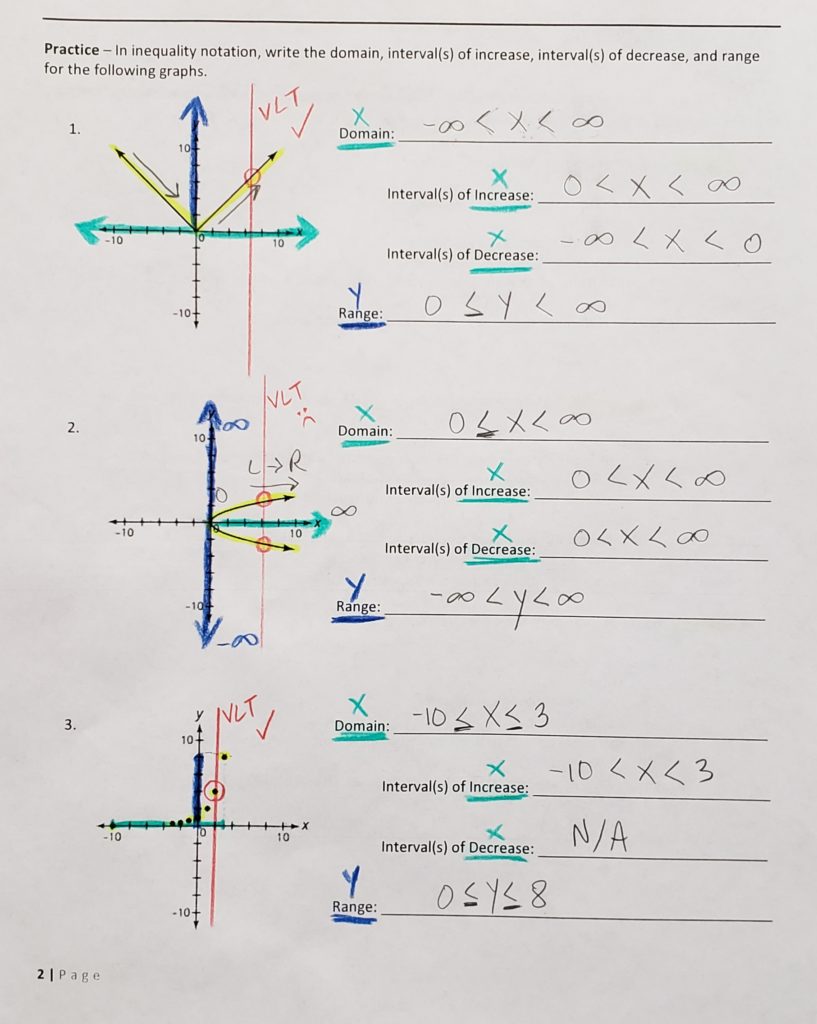 Practice – In inequality notation, write the domain, interval(s) of increase, interval(s) of decrease, and range
for the following graphs.
1.
VLT ✓
10
-10
0
10
x
-10
X
Domain: -∞ < X < ∞
X
Interval(s) of Increase: 0 < X < ∞
X
Interval(s) of Decrease: -∞ < X < 0
Y
Range: 0 ≤ Y < ∞
2.
VLT
y
∞
10
L→R
0
∞
-10
0
10
x
-10
-∞
X
Domain: 0 ≤ X < ∞
X
Interval(s) of Increase: 0 < X < ∞
X
Interval(s) of Decrease: 0 < X < ∞
Y
Range: -∞ < y < ∞
3.
y
VLT ✓
10
-10
0
10
x
-10
X
Domain: -10 ≤ X ≤ 3
X
Interval(s) of Increase: -10 < X < 3
X
Interval(s) of Decrease: N/A
Y
Range: 0 ≤ Y ≤ 8
2 | Page